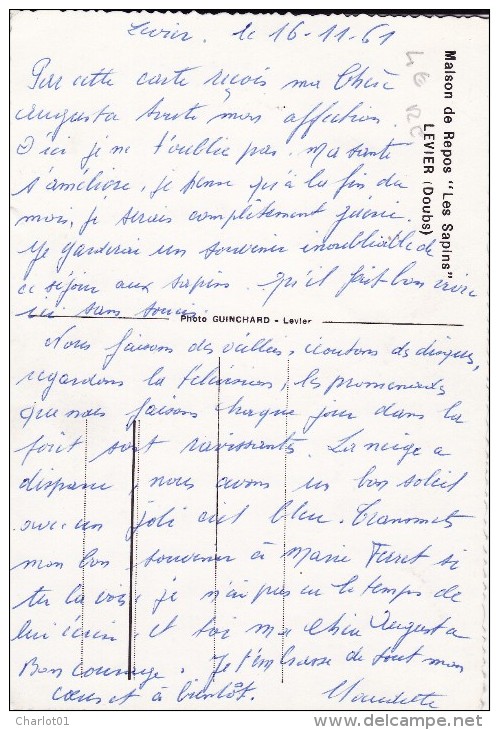 Levier. le 16-11-61
Maison de Repos "Les Sapins"
LEVIER (Doubs)
Par cette carte reçois ma Chère
Augusta toute mon affection.
D'ici je ne t'oublie pas. Ma santé
s'améliore, je pense qu'à la fin du
mois, je serais complètement guérie.
Je garderai un souvenir inoubliable de
ce séjour aux sapins. qu'il fait bon vivre
ici sans soucis.
Photo GUINCHARD - Levier
Nous faisons des veillées, écoutons des disques,
regardons la télévision, les promenades
que nous faisons chaque jour dans la
forêt sont ravissantes. La neige a
disparu, nous avons un bon soleil
avec un joli ciel bleu. Transmets
mon bon souvenir à Marie Ferret si
tu la vois, je n'ai pas eu le temps de
lui écrire, et toi ma Chère Augusta
Bon courage. Je t'embrasse de tout mon
coeur et à bientôt. Claudette
Charlot01
delcampe.net